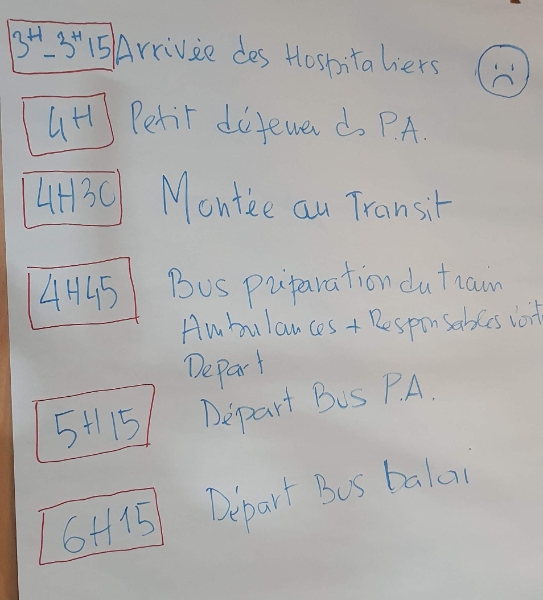 3H-3H15 Arrivée des Hospitaliers
4H Petit déjeuner ds P.A.
4H30 Montée au Transit
4H45 Bus préparation du train
Ambulances + Responsables voit
Depart
5H15 Départ Bus P.A.
6H15 Départ Bus balai